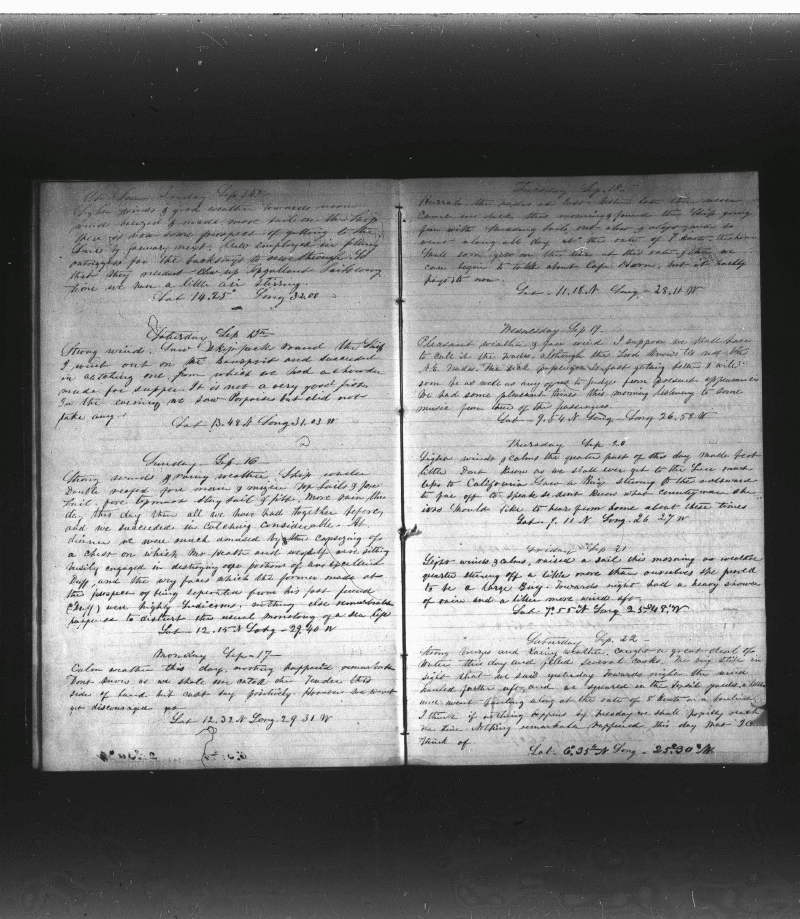 Sep 14th
Light winds & good weather towards noon
wind breezed & made more sail on the Ship
there is now some prospect of getting to the
Line by January next. Crew employed in fitting
outriggers for the backstays to reeve through. So
that they needent clew up topgallant sails every
time we have a little air stirring.
Lat 14.25 Long 32.00
Saturday Sep 15th
Strong wind. Saw Skipjacks round the Ship
I went out on the Bowsprit and succeeded
in catching one from which we had a chowder
made for supper. It is not a very good fish
In the evening we saw Porpoises but did not
take any.
Lat 13.48 N Long 31.03 W
Sunday Sep. 16
Strong winds & rainy weather. Ship under
Double reefed fore main & mizen top sails & fore
sail. fore topmast stay sail & jib. More rain this
day than all we have had together before,
and we succeeded in catching considerable. At
dinner we were much amused by the capsizing of
a chest on which Mr Heath and were sitting
busily engaged in destroying portions of our excellent
Duff, and the wry faces which the former made at
the prospect of being separated from his fast friend
(Duff) were highly ludicrous, nothing else remarkable
to disturb the usual monotony of a sea life
Lat - 12.15 N Long - 29.40 W
Monday Sep - 17
Calm weather this day, nothing happened remarkable
Dont know as we shall on this
side of land but cant say positively. However we wont
get discouraged yet
Lat 12.32 N Long. 29 31 W
Tuesday Sep. 18
the trades at last better late than never
Came on deck this morning & found the Ship going
fair with studding sails out alow & aloft and so
went along all day at the rate of 7 knots. then
shall soon on the line at this rate &
case begin to talk about Cape Horn, but it hardly
pays to now.
Lat - 11.18 N Long - 28.11 W
Wednesday Sep 19.
Pleasant weather & fair wind I suppose we shall have
to call it the trades, although the Lord knows its not the
N.E. trades. The sick passenger is fast getting better & will
soon be as well as any of us to judge from present appearances
We had some pleasant times this morning listening to some
music from two of the passengers.
Lat - 9.54 N Long - Long 26.58 W
Thursday Sep. 20
Light winds & calms the greater part of this day made but
little Dont know as we shall ever get to the Line much
less to California Saw a Brig steering to the
to far off to speak so dont know what countryman she
is. Would like to hear from home about these times
Lat - 9. 11 N Long. 26 27 W
Friday Sep 21
Light winds & calms, raised a sail this morning on weather
quarter steering off a little more than ourselves she proved
to be a large Brig. Towards night had a heavy shower
of rain and a little more wind aft.
Lat 7°.55' N Long 25°48' W
Saturday Sep. 22 -
Strong breezes and Rainy weather, caught a great deal of
water this day and filled several casks. The brig still in
sight that we said yesterday towards night the wind
hauled farther aft and we squared in the yards a little
and went along at the rate of 8 knots on a bowline.
I think if nothing happens by Tuesday we shall reach
the line Nothing remarkable happened this day that I can
think of.
Lat - 6.35 N Long - 25°.30 W